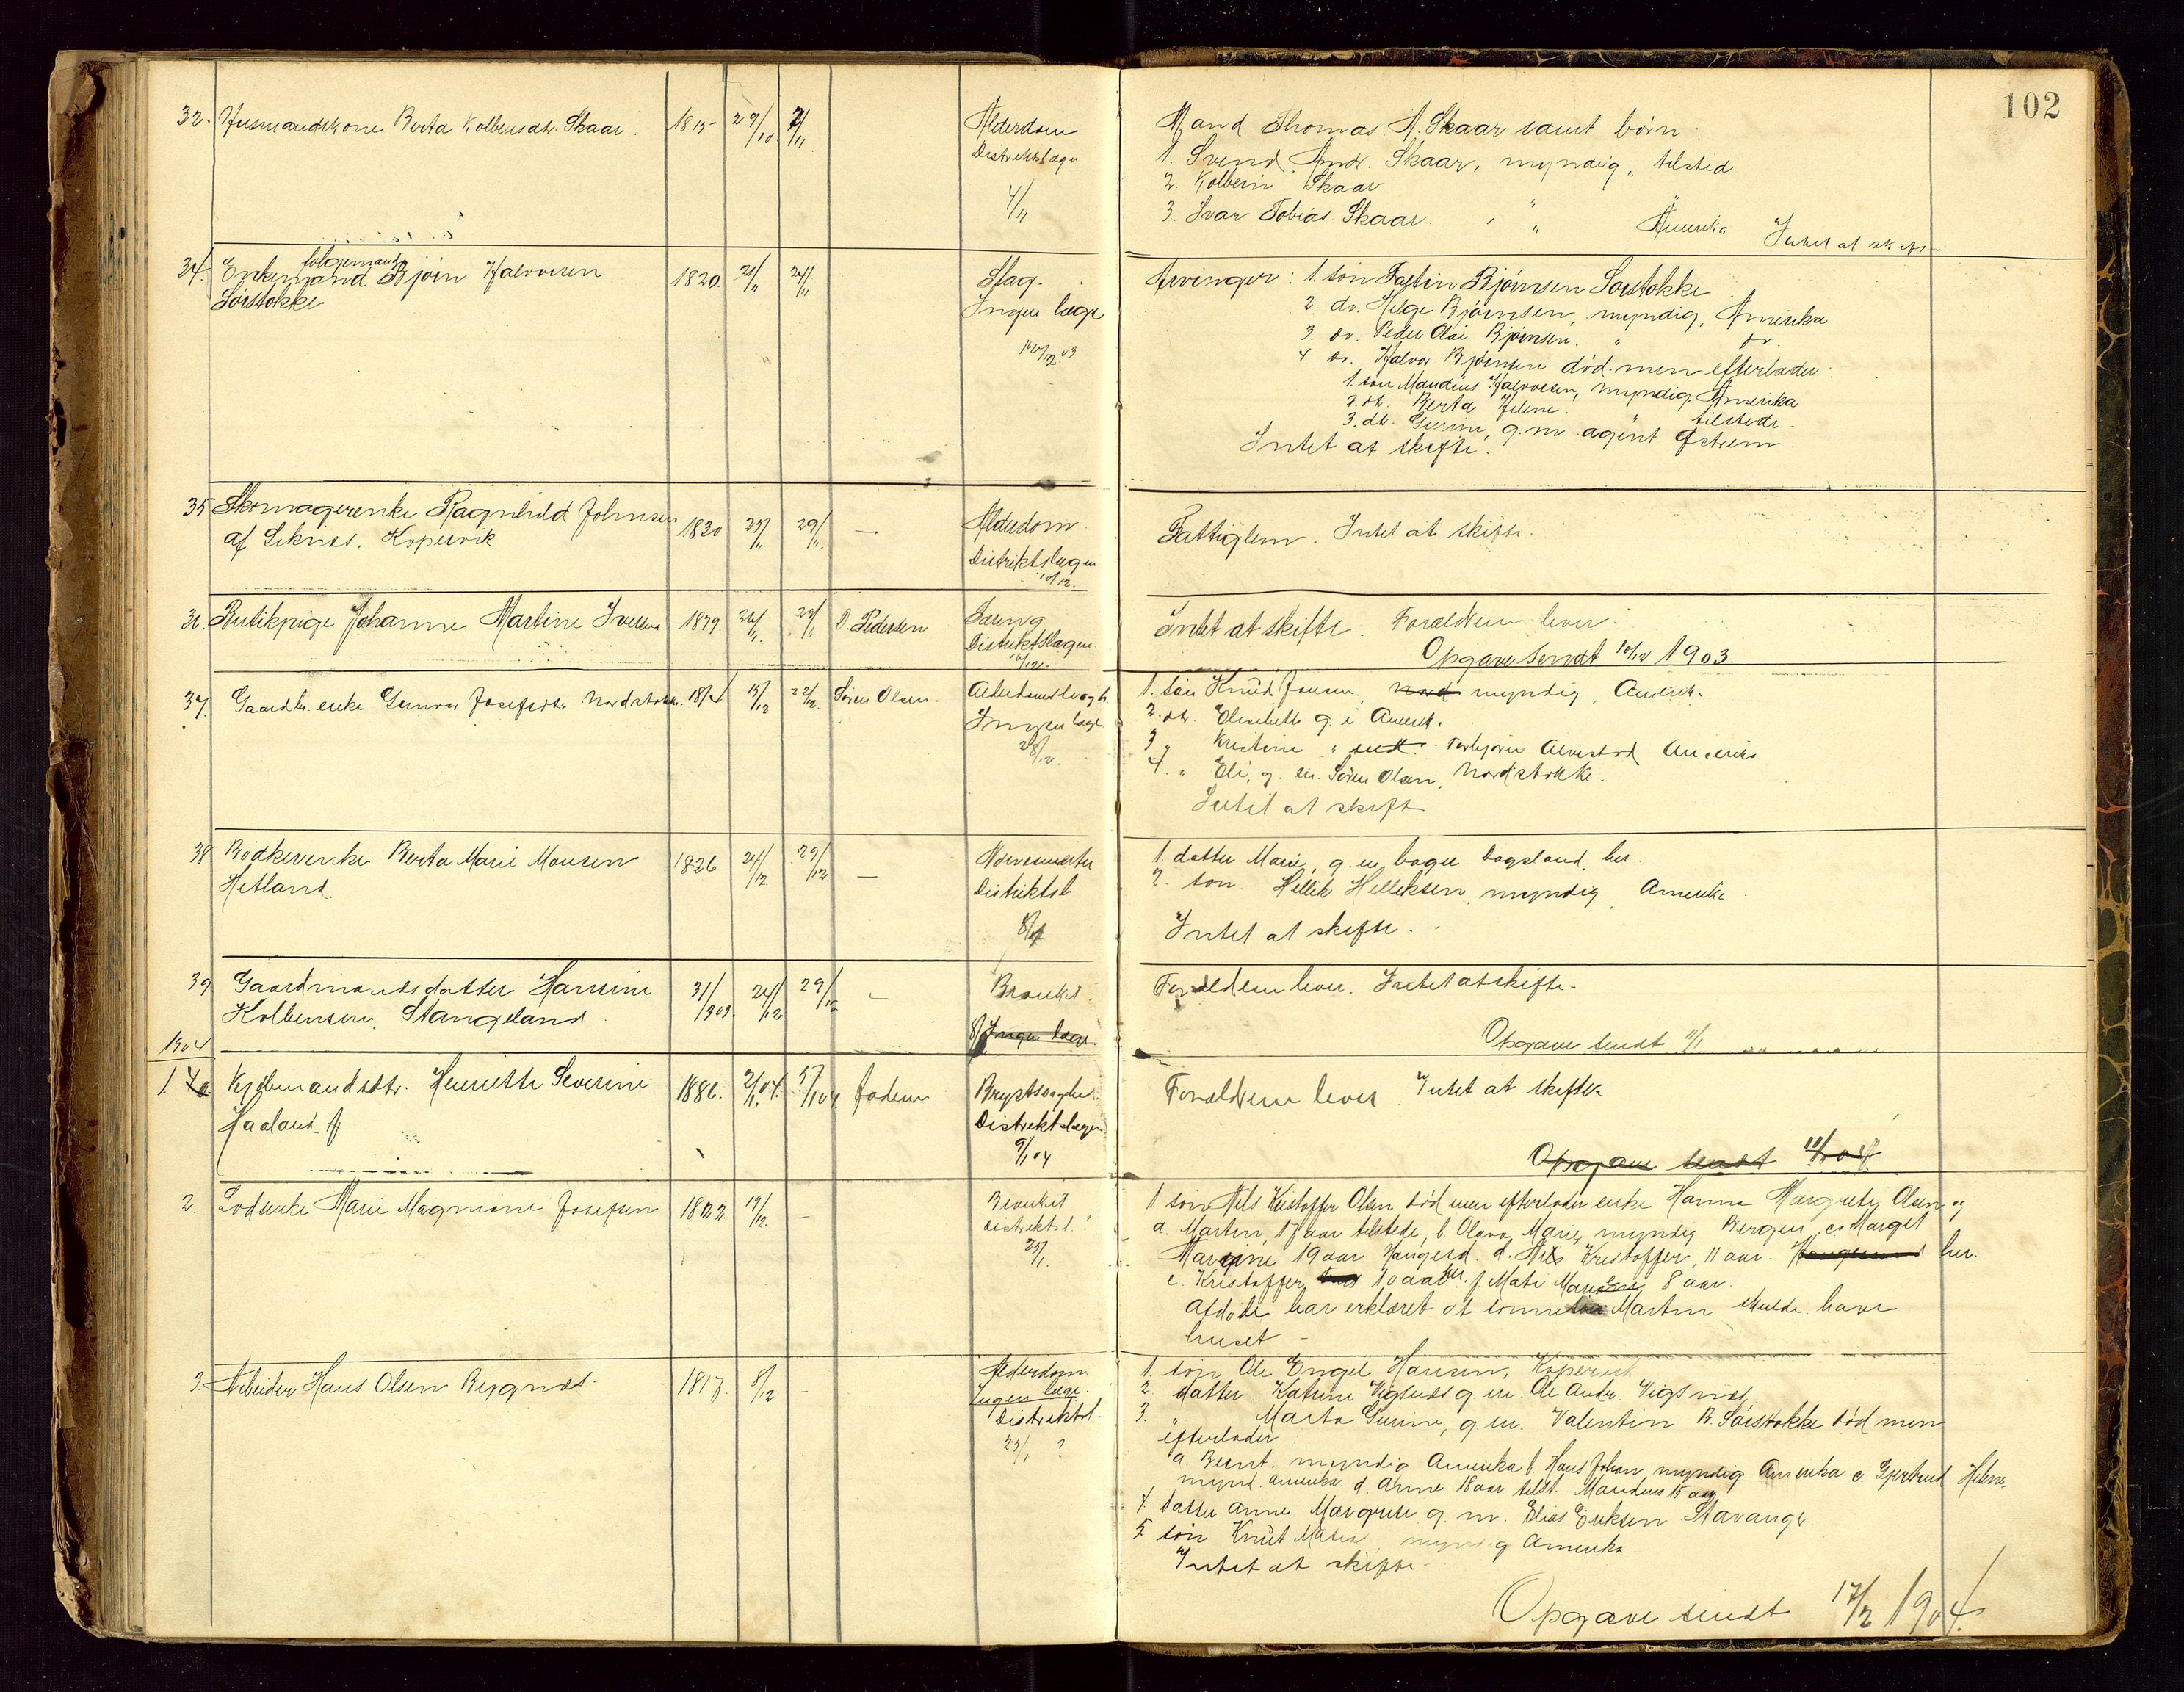 102
32. Husmandskone Berta Kolbensdtr. Skaar. 1815 29/10 2/11 Alderdom
Distriktslæge
4/11
Mand Thomas A. Skaar samt børn
1. Svend Andr. Skaar, myndig, tilsted
2. Kolbein Skaar
3. Ivar Tobias Skaar. " " Amerika Intet at skifte
34. Enkemand følgemand Bjørn Halvorsen 1820 21/11 24/11 Slag.
Sørstokke Ingen læge
10/12 03
Arvinger: 1. søn Faltin Bjørnsen Sørstokke
2. do. Helge Bjørnsen, myndig, Amerika
3. do. Peder Olai Bjørnsen. " do.
4 do. Halvor Bjørnsen død men efterlader
1. søn Maudius Halvorsen, myndig, Amerika
2. dtr. Berta Helene. " tilstede
3. dtr. Gurine, g.m. agent Østrem
Intet at skifte.
35 Skomagerenke Ragnhild Johnsen 1830 25/11 29/11 — Alderdom
af Seknes. Kopervik Distriktslægen
10/12.
Fattiglem. Intet at skifte.
36. Butikpige Johanne Martine Iversen 1879 26/11 29/11 O. Pedersen Tæring
Distriktslægen
10/12.
Intet at skifte. Forældrene lever.
Opgave sendt 10/12 1903.
37. Gaardbr. enke Gunvor Josefsdtr. Nordstokke. 1824 15/12 22/12 Søren Olsen. Alderdomssvagh.
Ingen læge
28/12.
1. søn Knud Jonsen, myndig, Amerik.
2. dtr. Elisabeth g. i Amerik.
3 " Kristine " Torbjørn Alvestad Amerika
4. " Eli, g. m. Søren Olsen, Nordstokke.
Intet at skifte
38 Bødkerenke Berta Marie Monsen 1826 24/12 29/12 — Nervesmerter
Hetland. Distriktsl
8/1
1. datter Marie, g. m. bager Dagsland, her.
2. søn Hellik Helliksen, myndig, Amerika.
Intet at skifte.
39 Gaardmandsdatter Hansine 31/1 903. 24/12 29/12 — Bronkit.
Kolbensen, Stangeland 8/1 Ingen læge.
Forældrene lever. Intet at skifte.
Opgave sendt 11/1
1904
1. 40. Kjøbmandsdtr. Henriette Severine 1886. 2/1 04. 5/1 04. Faderen Brystsygdom.
Haaland f Distriktslægen
9/1 04
Forældrene lever. Intet at skifte.
Opgave sendt 11/1 04.
2. Lodsenke Marie Magnine Josefsen 1822 19/12. — Bronkit
Distriktsl.
25/1.
1. søn Nils Kristoffer Olsen død men efterlader enke Hanna Margrete Olsen og
a. Martin, 17 aar tilstede, b Olava Marie, myndig Bergen, c. Marget
Marine 19 aar Haugesd. d. Nils Kristoffer, 11 aar. her.
e. Kristoffer 10 aar her. f Mate 8 aar.
Afdøde har erklæret at sønnesøn Martin skulde have
huset —
3. Arbeider Hans Olsen Bygnes. 1817. 8/12 — Alderdom
Ingen læge.
Distriktsl.
25/1 ?
1. søn Ole Engel Hansen, Kopervik
2 datter Katrine Vigsnes g m. Ole Andr. Vigsnes
3. " Marta Gurine, g. m. Valentin B. Sørstokke død men
efterlader
a. Bernt. myndig Amerika b. Hans Johan myndig Amerika c. Gjertrud Helene,
mynd. Amerika d. Anne 18 aar tilst. Maudius 15 aar
4. datter Anne Margrete g. m. Elias Eriksen Stavanger.
5. søn Knut Matias, myndig Amerika
Intet at skifte
Opgave sendt 17/2 1904.